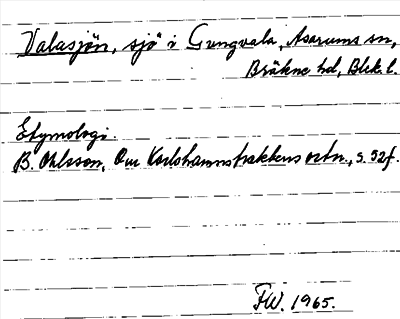 Valasjön, sjö i Gungvala, Asarums sn,
Bräkne hd, Blek. l.
Etymologi.
B. Ohlsson, Om Karlshamnstraktens ortn., s. 52f.
FW. 1965.